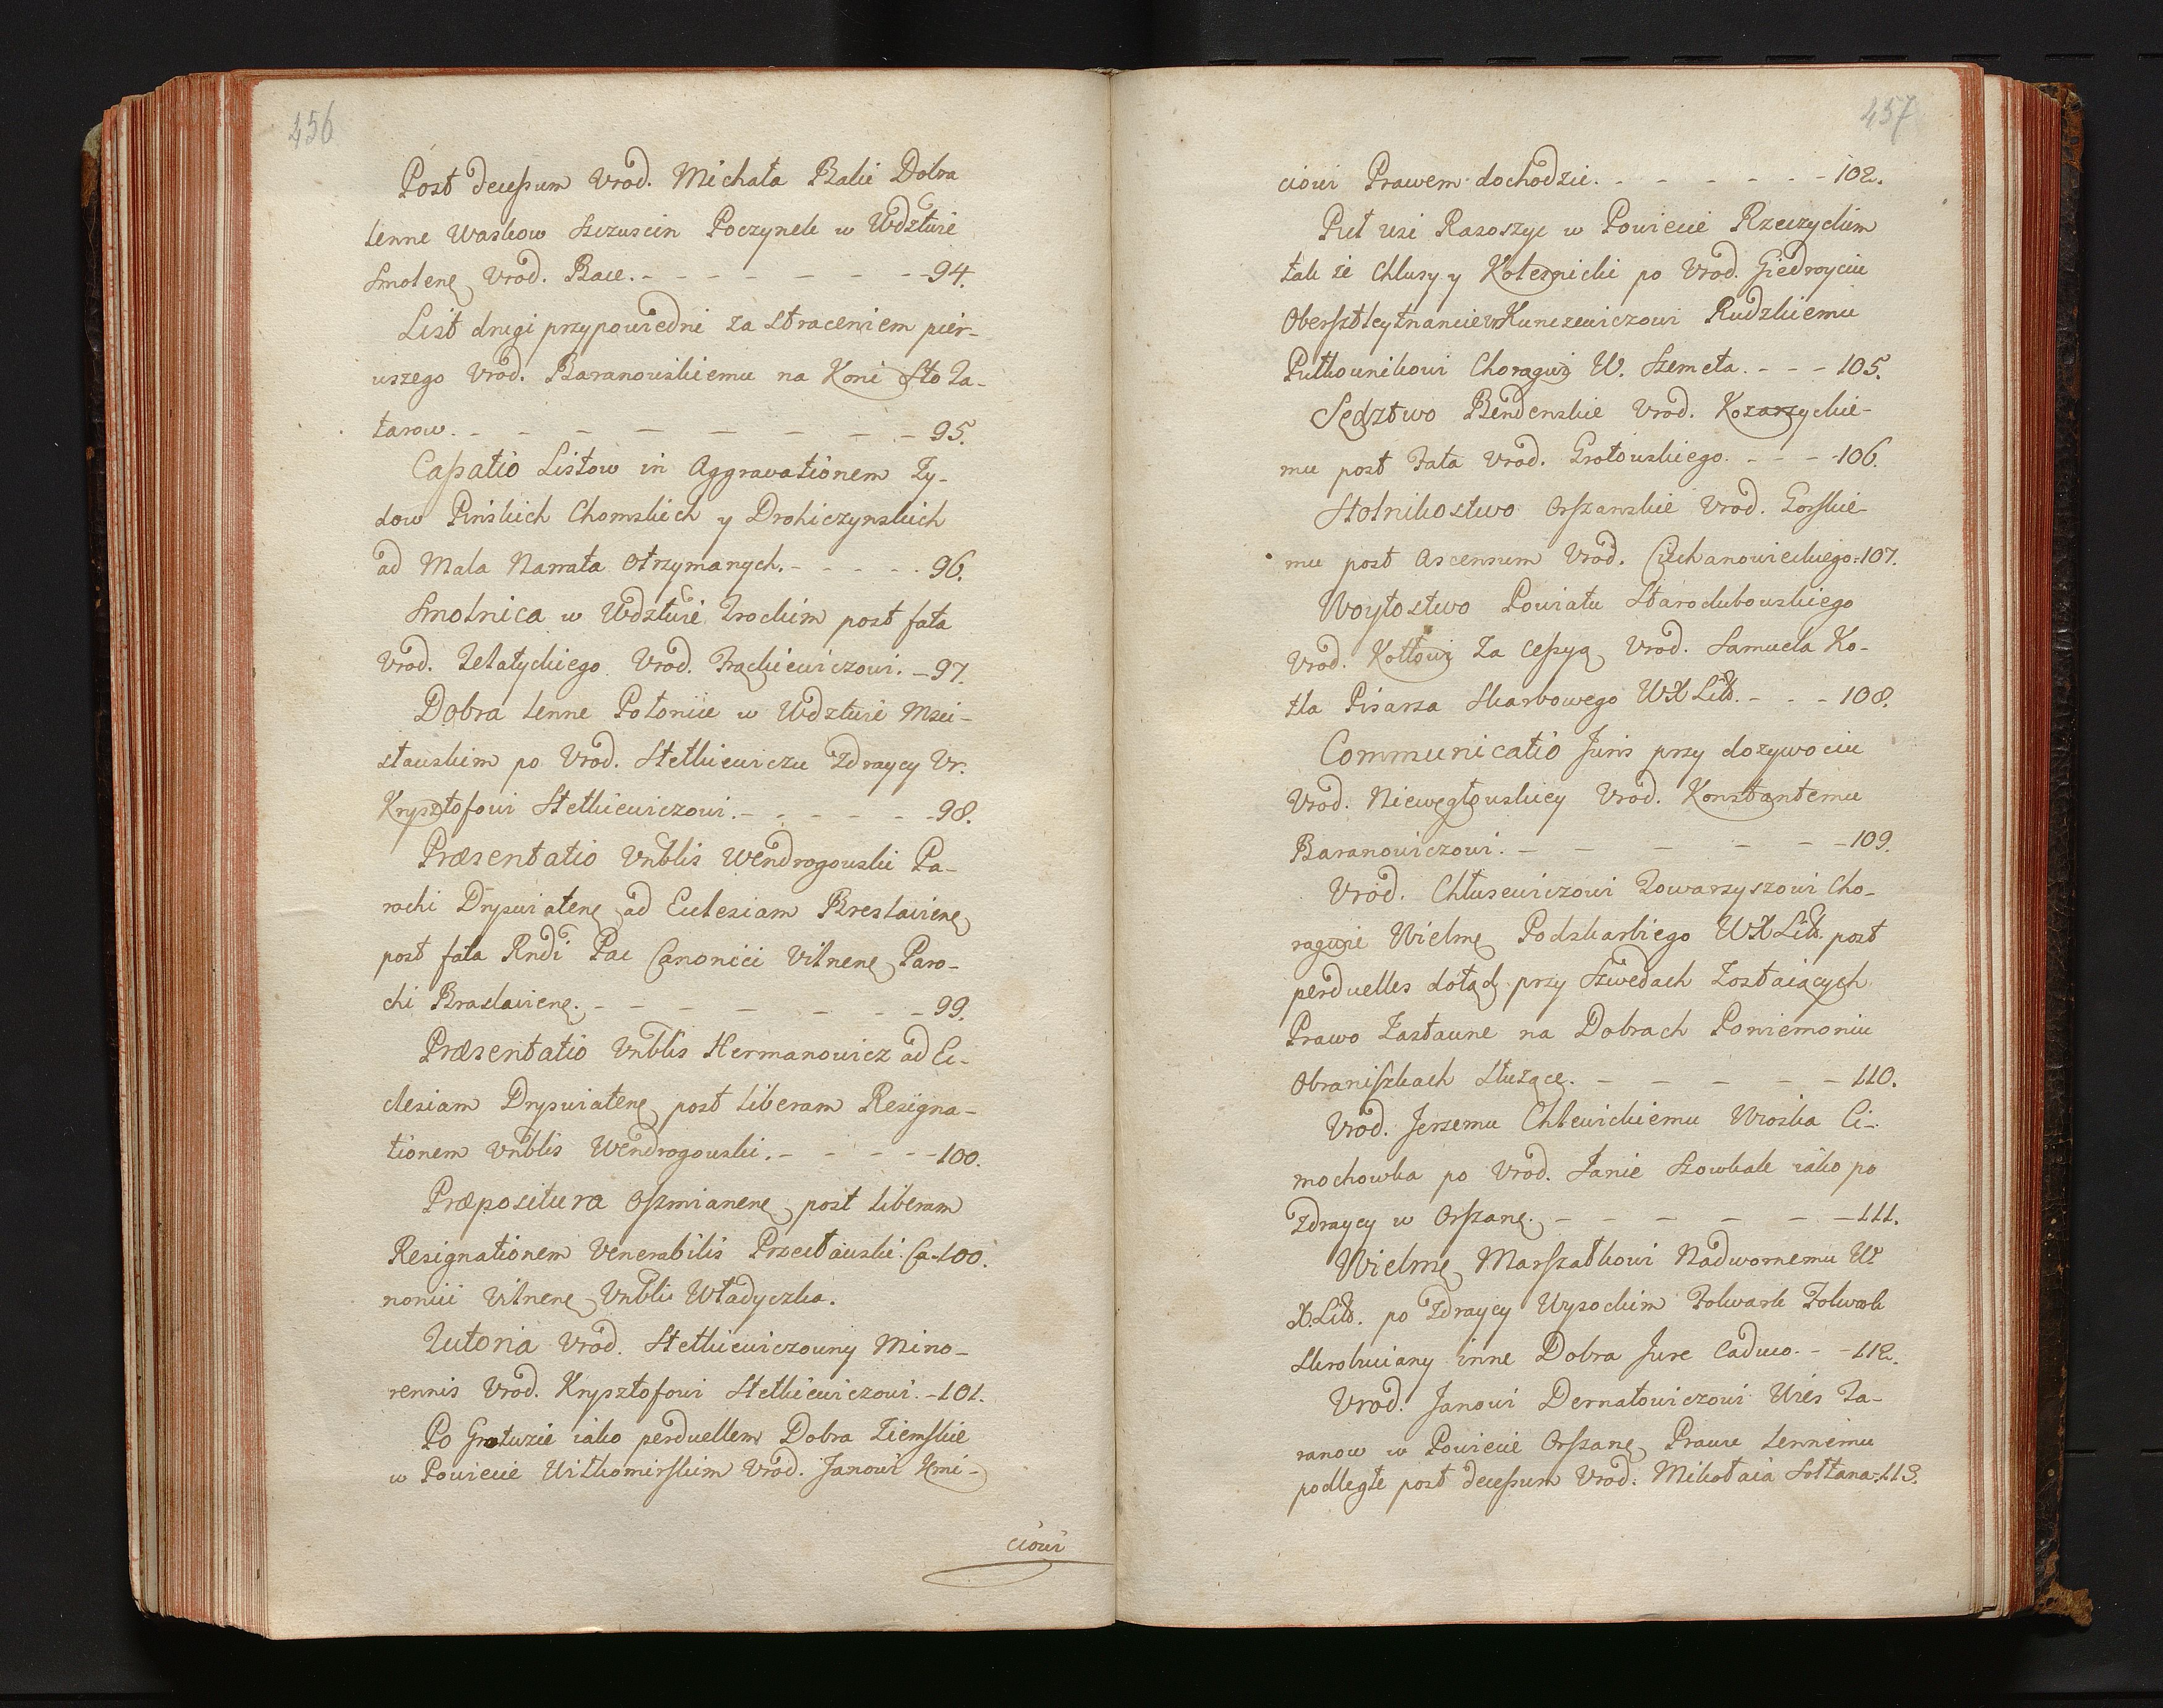 456
Post decessum Urod. Michała Bakii Dobra
lenne Waskow Szczuscin Poczynek w Wdztwie
Smolenę Urod. Bace. - - - - - - - - 94.
List drugi przypowiedni za straceniem pier-
wszego Urod. Baranowskiemu na Koni Sto Ta-
tarow. - - - - - - - - 95.
Cassatio Listow in Aggravationem Zy-
dow Pinskich Chomskich y Drohiczynskich
ad Mala Narrata otrzymanych. - - - - - 96.
Smolnica w Wdztwie Trockim post fata
Urod. Zelatyckiego Urod. Frąckiewiczowi. - 97.
Dobra lenne Połonije w Wdztwie Msci-
sławskim po Urod. Stetkiewiczu Zdraycy Ur.
Krysztofowi Stetkiewiczowi. - - - - - - 98.
Præsentatio Vnblis Wendrogowski Pa-
rochi Dryswiatenę ad Ecclesiam Breslavienę
post fata Rndi Pac Canonici Vilnenę Paro-
chi Braslavienę. - - - - - - - 99.
Præsentatio Vnblis Hermanowicz ad Ec-
clesiam Dryswiatenę post liberam Resigna-
tionem Vnblis Wendrogowski. - - - - - 100.
Præpositura Oszmianenę post liberam
Resignationem Venerabilis Przecławski Ca- 100.
nonici Vilnenę Vnbli Władyczka.
Tutoria Urod. Stetkiewiczowny Mino-
rennis Urod. Krysztofowi Stetkiewiczowi. - 101.
Po Grotuzie iako perduellem Dobra Ziemskie
w Powiecie Wiłkomirskim Urod. Janowi Kmi-
ciowi
457
ciowi Prawem dochodzic. - - - - - - - 102.
Puł wsi Rasoszyc w Powiecie Rzeczyckim
tak ze Chlusy y Kolesnicki po Urod. Giedroyciu
Obersztleytnanciew Kunczewiczowi Rudzkiemu
Pułkownikowi Chorągwi W. Szemeta. - - - 105.
Sędztwo Bendenskie Urod. Kozarzyckie-
mu post Fata Urod. Grotowskiego. - - - - 106.
Stolnikostwo Orszanskie Urod. Gorskie-
mu post Ascensum Urod. Ciechanowieckiego. - 107.
Woytostwo Powiatu Starodubowskiego
Urod. Kotłowi za cessyą Urod. Samuela Ko-
tla Pisarza Skarbowego WXLitt. - - - 108.
Communicatio Juris przy dozywociu
Urod. Niewęgłowskiey Urod. Konstantemu
Baranowiczowi. - - - - - - 109.
Urod. Chłusewiczowi Towarzyszowi Cho-
rągwie Wielmę Podskarbiego WXLitt. post
perduelles dotąd przy Szwedach zostaiących
Prawo Zastawne na Dobrach Poniemoniu
Obraniszkach służące. - - - - - 110.
Urod. Jerzemu Chlewickiemu Wioska Ci-
mochowka po Urod. Janie Szowkale iako po
Zdraycy w Orszanę. - - - - - - 111.
Wielmę Marszałkowi Nadwornemu W.
X.Litt. po Zdraycy Wysockim Folwark Folwark
Skrobuciany inne Dobra Jure Caduco. - - 112.
Urod. Janowi Dernałowiczowi Wies Ta-
ranow w Powiecie Orszanę Prawu lennemu
podległe post decessum Urod. Mikołaia Sołtana. 113.